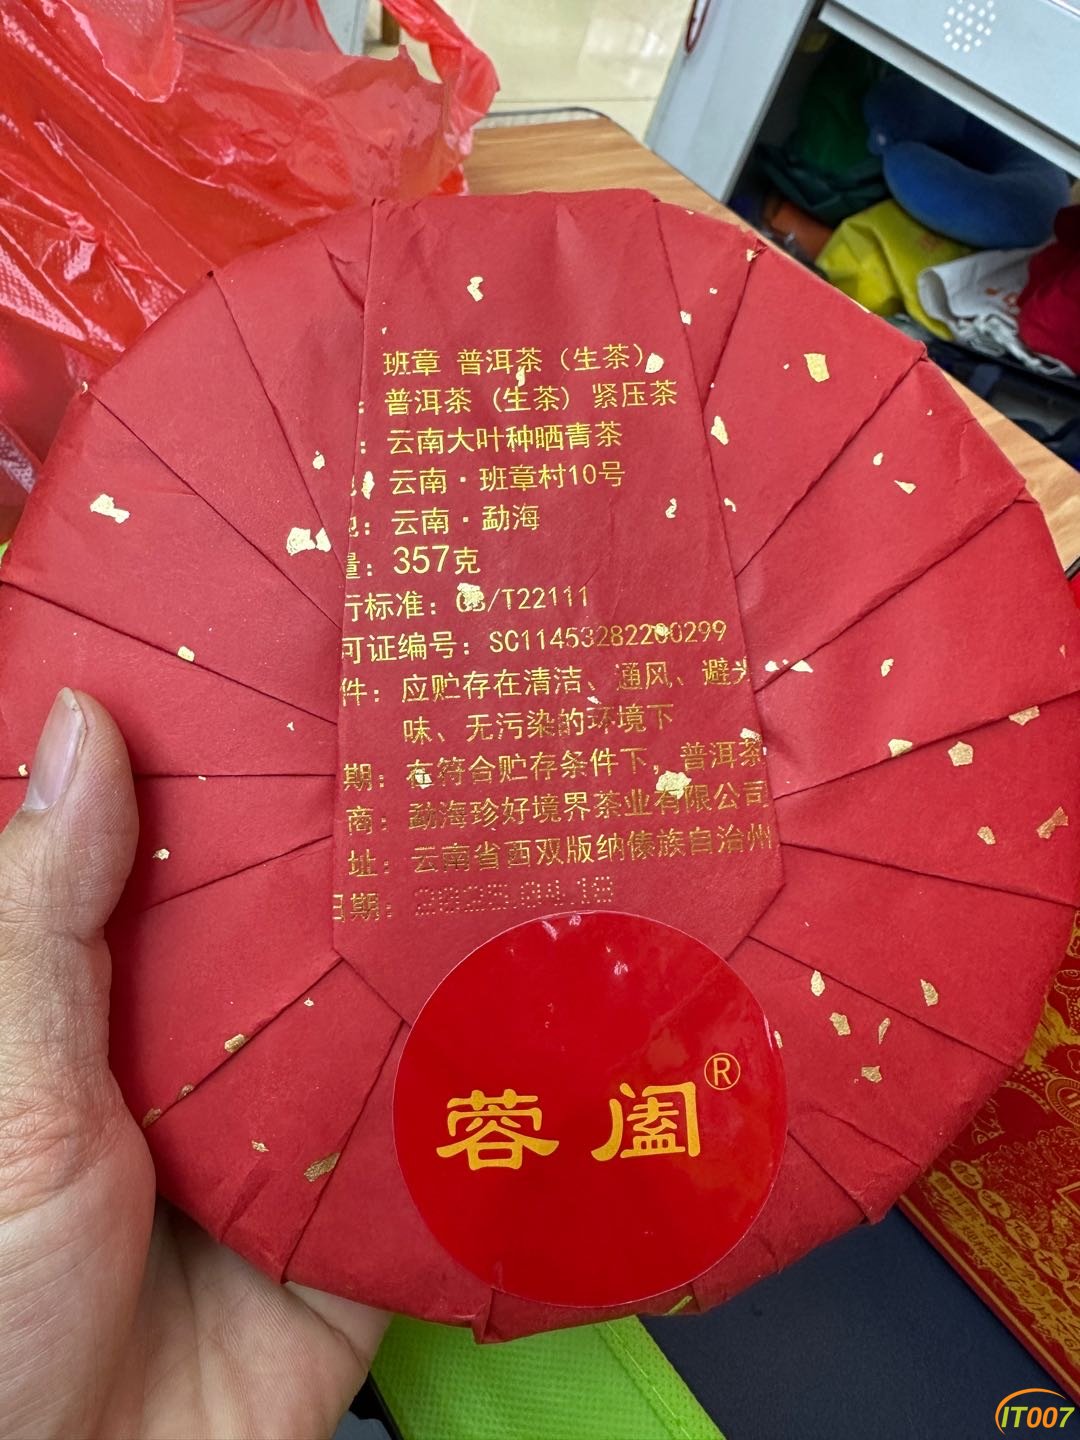 班章 普洱茶（生茶）
：普洱茶（生茶）紧压茶
：云南大叶种晒青茶
云南·班章村10号
：云南·勐海
量：357克
行标准：GB/T22111
可证编号：SC11453282200299
件：应贮存在清洁、通风、避光
味、无污染的环境下
期：在符合贮存条件下，普洱茶
商：勐海珍好境界茶业有限公司
址：云南省西双版纳傣族自治州
日期：2025.04.18
蓉阖®
IT007